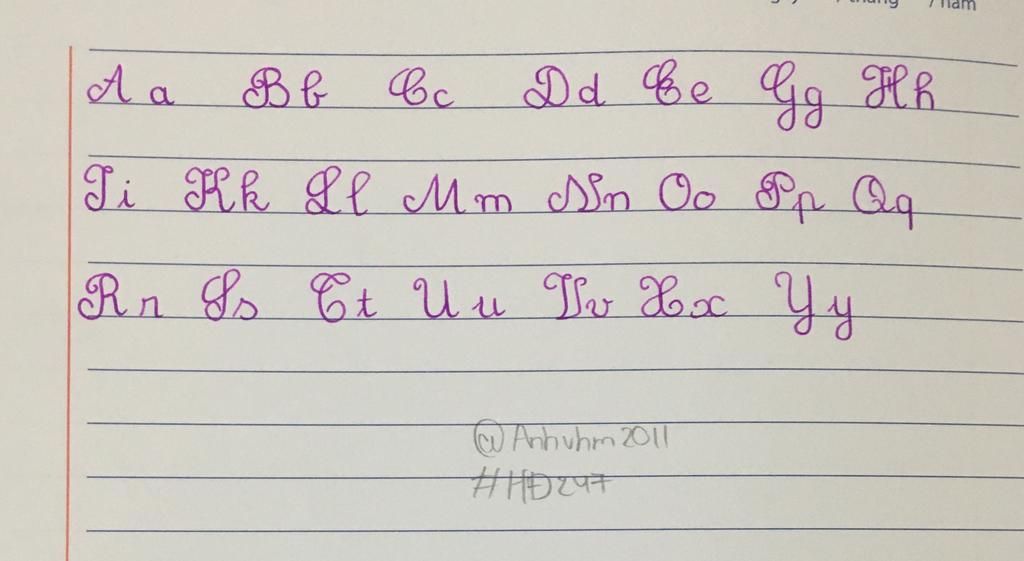 / tháng / năm
Aa Bb Cc Dd Ee Gg Hh
Ii Kk Ll Mm Nn Oo Pp Qq
Rr Ss Tt Uu Vv Xx Yy
@Anhvhm2011
#HĐ247